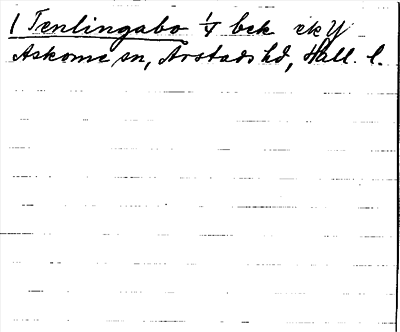 1 Tenlingabo 1/4 bck ekY
Askome sn, Årstads hd, Hall. l.